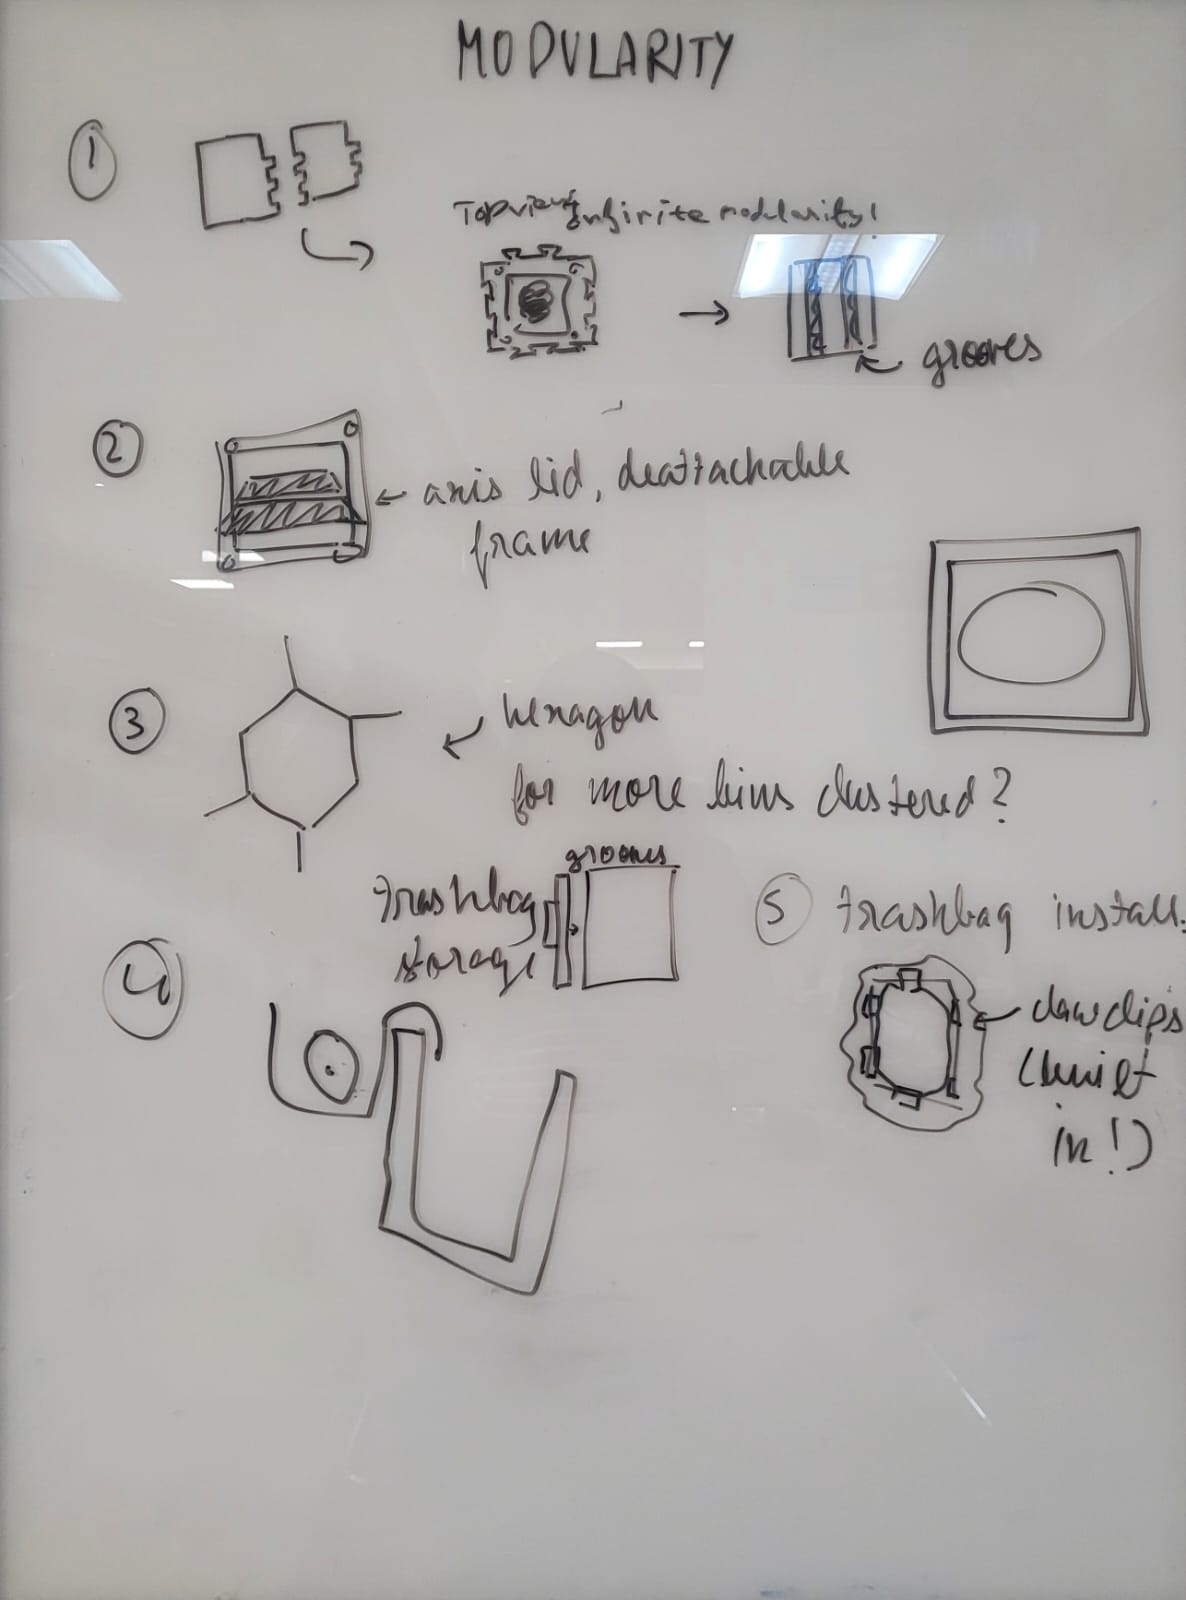 MODULARITY
1
Top view Infinite modularity!
grooves
2
axis lid, deattachable
frame
3
hexagon
for more bins clustered?
grooves
trashbag
storage
4
5 trashbag install.
claw clips
(built
in!)